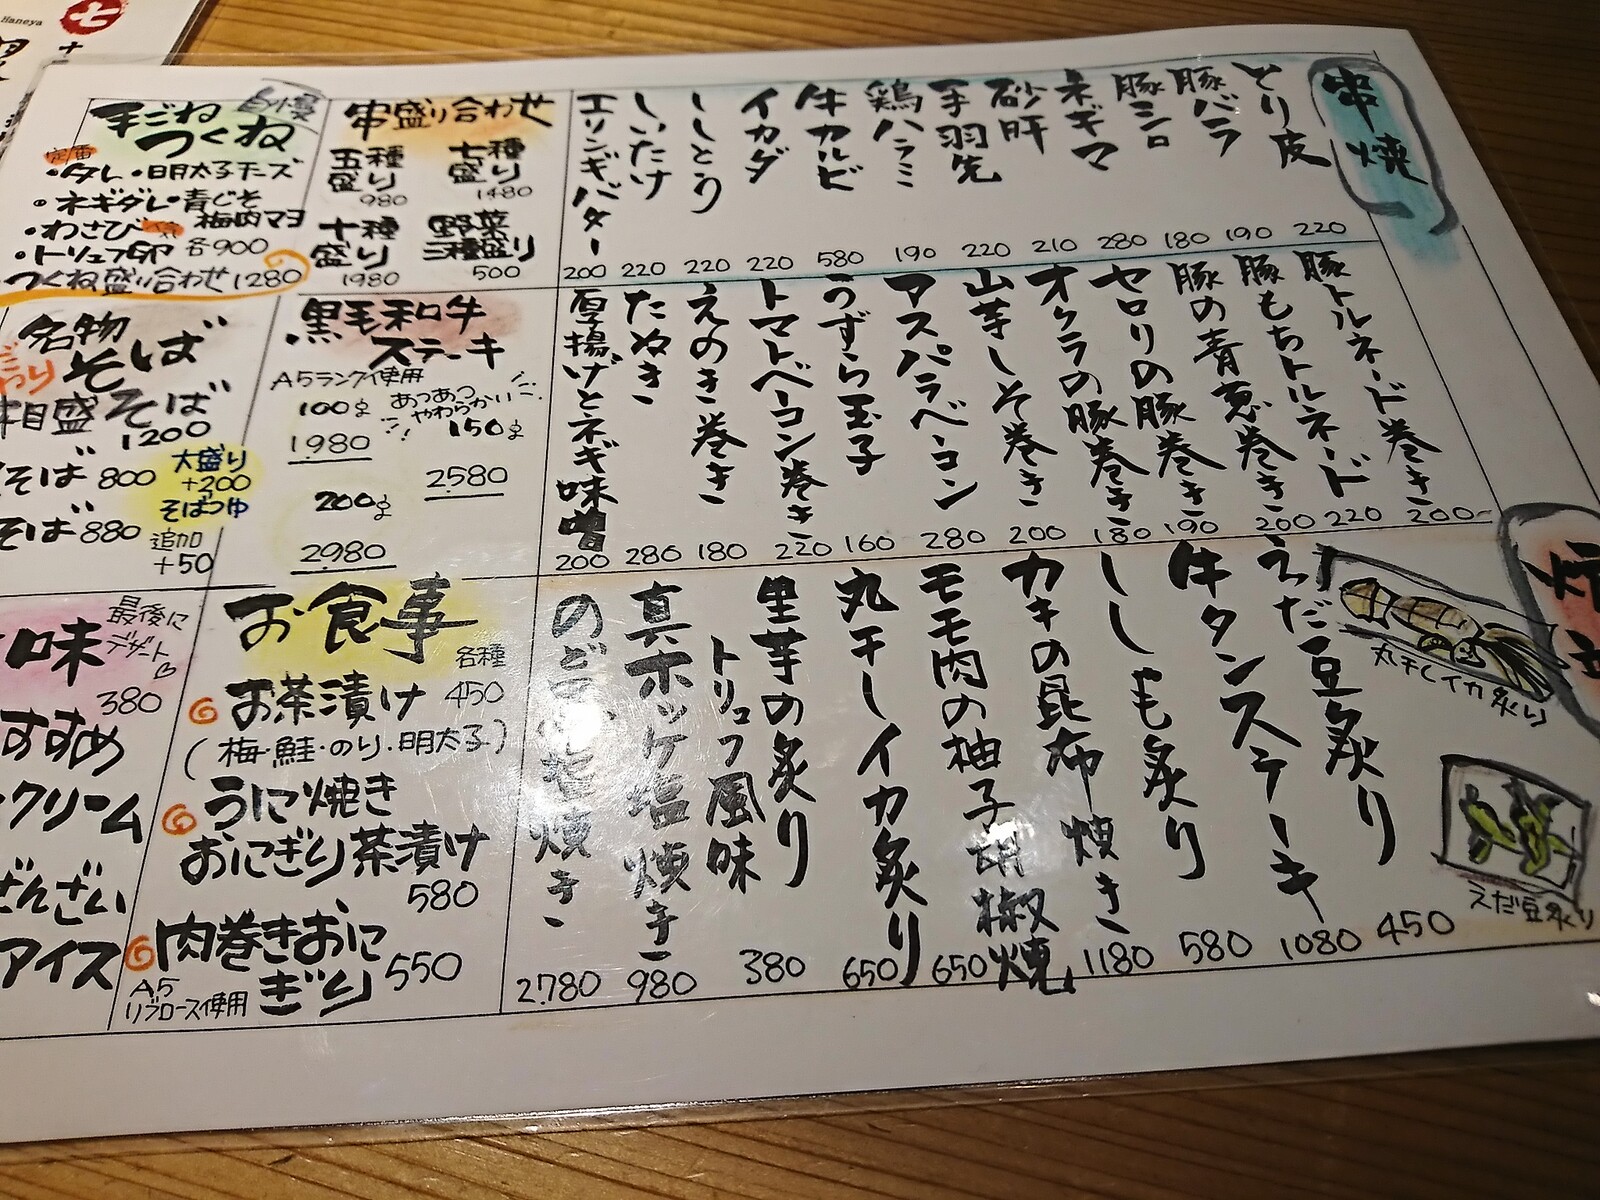 串焼
とり皮 220
豚バラ 190
豚シロ 180
ネギマ 280
砂肝 210
手羽先 220
鶏ハラミ 190
牛カルビ 580
イカダ 220
ししとう 220
しいたけ 220
エリンギバター 200
豚トルネード巻き 200
豚もちトルネード 220
豚の青葱巻き 200
セロリの豚巻き 190
オクラの豚巻き 180
山芋しそ巻き 200
アスパラベーコン 280
うずら玉子 160
トマトベーコン巻き 220
えのき巻き 180
たぬき 280
厚揚げとネギ味噌 200
えだ豆炙り 450
牛タンステーキ 1080
ししゃも炙り 580
カキの昆布焼き 1180
モモ肉の柚子胡椒焼 650
丸干しイカ炙り 650
里芋の炙り
トリュフ風味 380
真ホッケ塩焼き 980
のどぐろ塩焼き 2.780
丸干しイカ炙り
えだ豆炙り
串盛り合わせ
五種盛り 980
七種盛り 1480
十種盛り 1980
野菜三種盛り 500
自慢
手ごねつくね
定番
・タレ・明太子チーズ
・ネギダレ・青じそ
・わさび 梅肉マヨ
・トリュフ卵 各900
つくね盛り合わせ 1280
黒毛和牛
ステーキ
A5ランク使用
あつあつ
やわらかい
100g 1980
150g 2580
200g 2980
名物
そば
盛そば
1200
そば 800
そば 880
大盛り
+200
そばつゆ
追加
+50
お食事
各種
お茶漬け 450
(梅・鮭・のり・明太子)
うに焼き
おにぎり茶漬け
580
肉巻きおに
ぎり 550
A5
リブロース使用
味
最後に
デザート
380
すすめ
クリーム
ぜんざい
アイス
七
Haneya